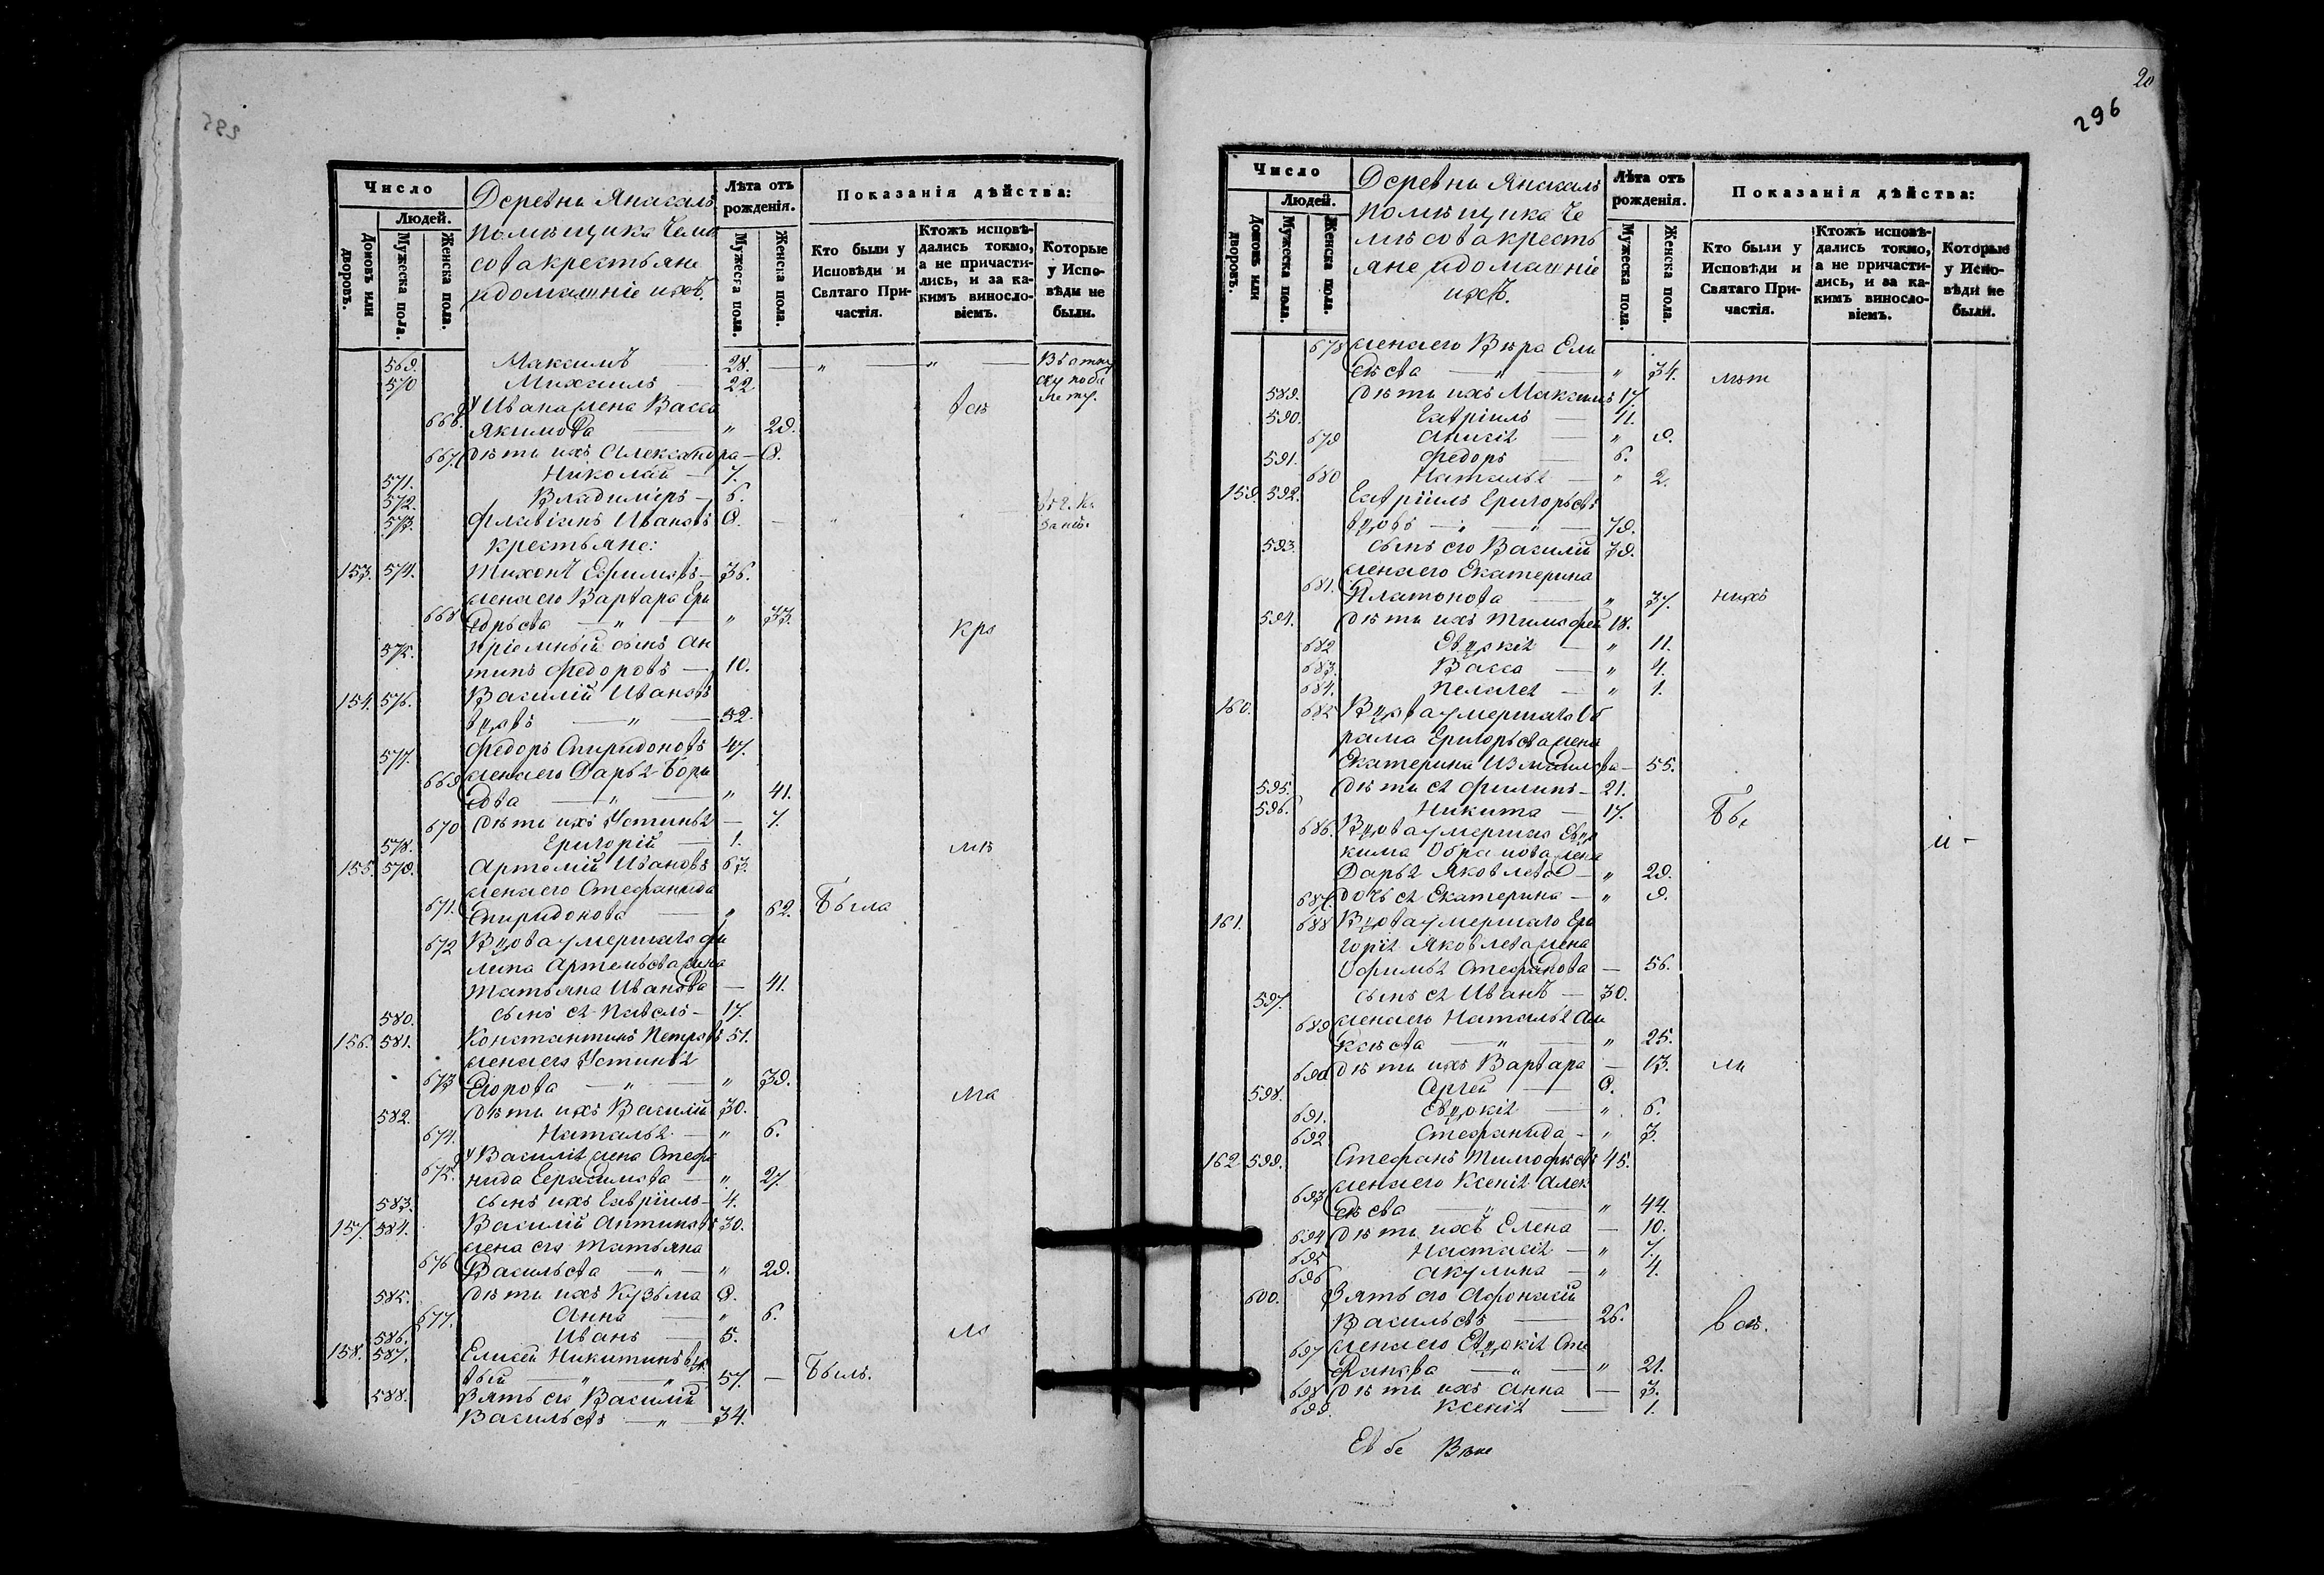 Число
Людей.
Домовъ или дворовъ.
Мужеска пола.
Женска пола.
Деревни
помѣщика
сова крестьяне
и домашніе ихъ.
Лѣта отъ рожденія.
Мужеска пола.
Женска пола.
Показанія дѣйства:
Кто были у Исповѣди и Святаго Причастія.
Ктожъ исповѣдались токмо, а не причастились, и за какимъ винословіемъ.
Которые у Исповѣди не были.
569. Максимъ — 28. — „ — „
570 Михаилъ — 22
У Ивана жена Васса
666. Якимова — „ 29.
667. Дѣти ихъ Александра — 8.
571. Николай — 7.
572. Владиміръ — 6.
573. Флавіанъ Ивановъ 8.
крестьяне:
153. 574. Тихонъ Ефимовъ — 36.
жена его Варвара Гри
668 горьева — „ — „ 33.
575. Пріемный сынъ Ан
типъ Федоровъ — 10.
154. 576. Василій Ивановъ
вдовъ — „ — 52.
577. Федоръ Спиридоновъ 47.
669 жена его Дарья
— „ — „ 41.
670 Дѣти ихъ Устинья — 7.
578. Григорій — 1.
155. 579. Артемій Ивановъ 63.
жена его Стефанида
671. Спиридонова — „ 62. Была
672 Вдова умершаго Фи
липа Артемьева жена
Татьяна Иванова — 41.
580. сынъ ея Павелъ — 17.
156. 581. Константинъ Петровъ 51.
жена его Устинья
673 Егорова — „ — „ 39.
582. Дѣти ихъ Василій 30.
674. Наталья — „ 6.
У Василія жена Стефа
675. нида Герасимова — „ 27.
583. сынъ ихъ Гавріилъ — 4.
157. 584. Василій Антиповъ 30.
жена его Татьяна
676 Васильева — „ — „ 29.
585. Дѣти ихъ Кузьма 8.
677. Анна — „ 6.
586. Иванъ — 5.
158. 587. Елисей Никитинъ вдо
вый — „ — „ 57. — Былъ.
588. Зять его Василій
Васильевъ — „ — 34.
20
296
Число
Людей.
Домовъ или дворовъ.
Мужеска пола.
Женска пола.
Деревни
помѣщика Че
мѣсова кресть
яне и домашніе
ихъ.
Лѣта отъ рожденія.
Мужеска пола.
Женска пола.
Показанія дѣйства:
Кто были у Исповѣди и Святаго Причастія.
Ктожъ исповѣдались токмо, а не причастились, и за какимъ винословіемъ.
Которые у Исповѣди не были.
678 жена его Вѣра Ели
сѣева — „ — „ 34.
589. Дѣти ихъ Максимъ 17.
590. Гавріилъ — 11.
679 Анисія — „ 9.
591. Федоръ — 6.
680 Наталья — „ 2.
159. 592. Гавріилъ Григорьевъ
вдовъ — „ — „ — 79.
593. сынъ его Василій 39.
жена его Екатерина
681. Платонова — „ 37.
594. Дѣти ихъ Тимофей 18.
682 Евдокія — „ 11.
683. Васса — „ 4.
684. Пелагея — „ 1.
160. 685 Вдова умершаго Аб
рама Григорьева жена
Екатерина Измайлова — 55.
595. Дѣти ея Филипъ — 21.
596. Никита — 17.
686. Вдова умершаго Евдо
кима Абрамова жена
Дарья Яковлева — „ 29.
687. Дочь ея Екатерина — „ 9.
161. 688 Вдова умершаго Гри
горія Яковлева жена
Офимья Стефанова — 56.
597. сынъ ея Иванъ — 30.
689 жена его Наталья Але
ксѣева — „ — „ 25.
690 Дѣти ихъ Варвара — 13.
598. Сергей — 8.
691. Евдокія — „ 6.
692. Стефанида — „ 3.
162 599. Стефанъ Тимофѣевъ 45.
жена его Ксенія Алек
693 сѣева — „ — „ 44.
694 Дѣти ихъ Елена — 10.
695 Настасія — „ 7.
696 Акулина — „ 4.
600. Зять его Афонасій
Васильевъ — 26.
697 жена его Евдокія Сте
фанова — „ — „ 21.
698 Дѣти ихъ Анна — 3.
699. Ксенія — 1.